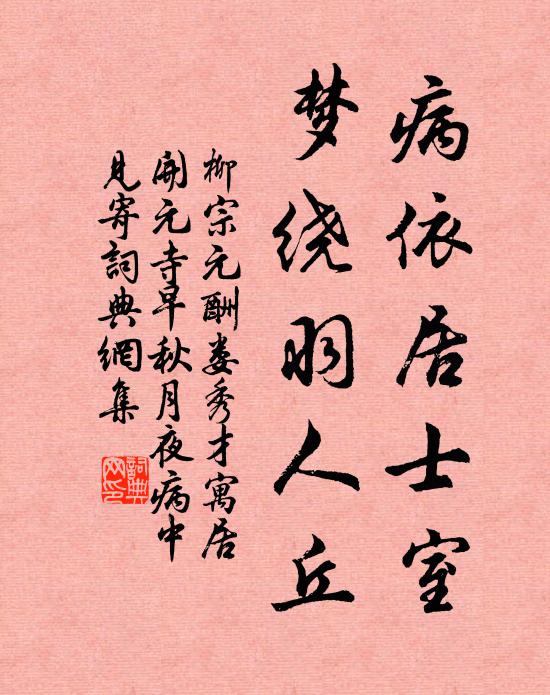 病依居士室
梦绕羽人丘
柳宗元酬娄秀才寓居
開元寺早秋月夜病中
見寄詞典網集
詞典網印